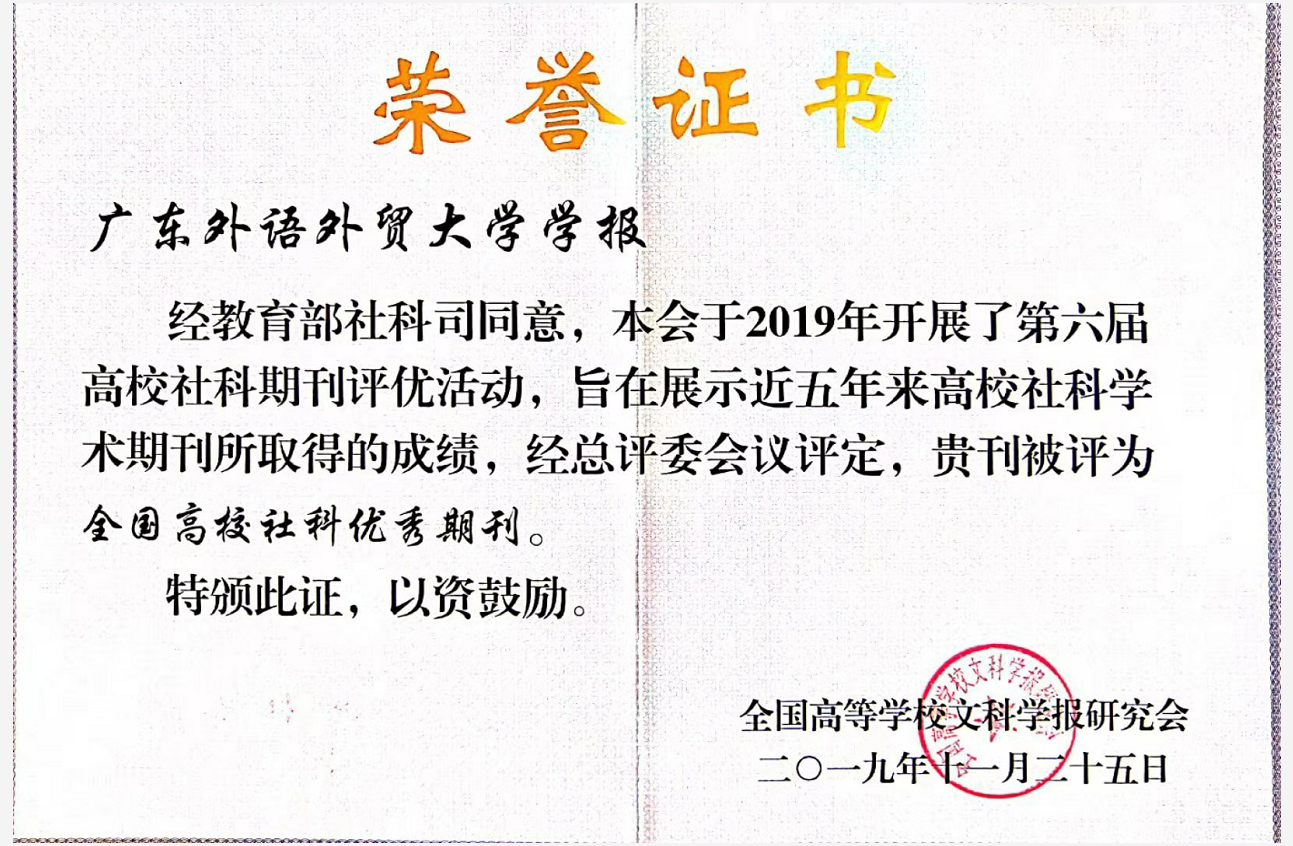 荣誉证书
广东外语外贸大学学报
经教育部社科司同意，本会于2019年开展了第六届
高校社科期刊评优活动，旨在展示近五年来高校社科学
术期刊所取得的成绩，经总评委会议评定，贵刊被评为
全国高校社科优秀期刊。
特颁此证，以资鼓励。
全国高等学校文科学报研究会
二〇一九年十一月二十五日